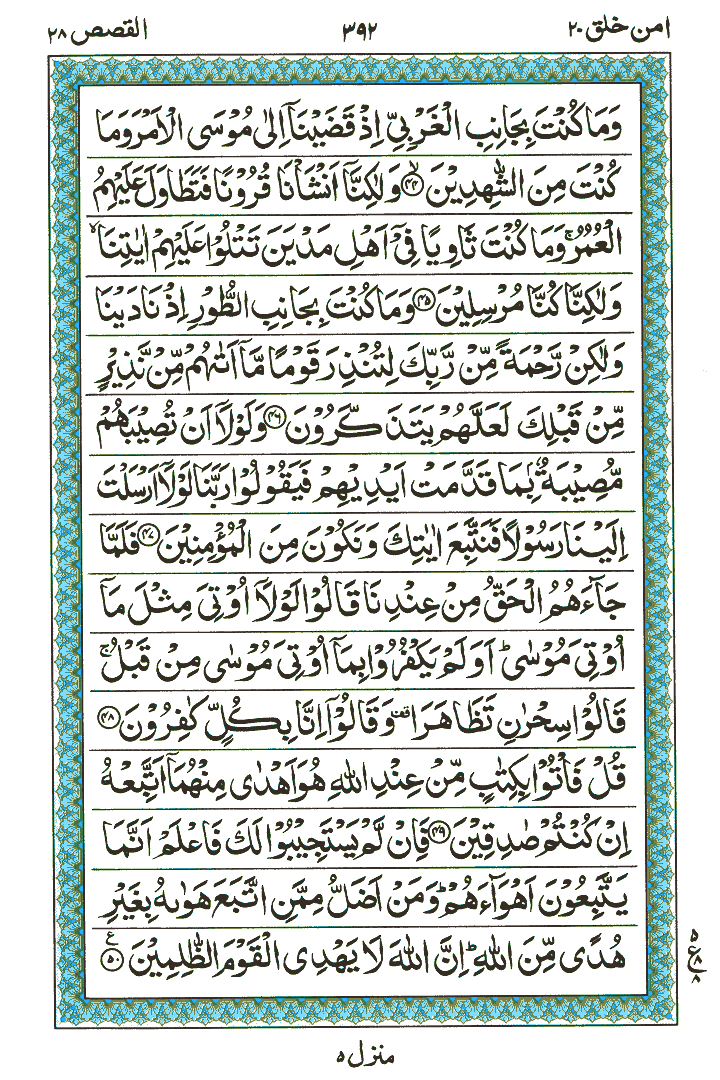 امن خلق ٢٠ ٣٩٢ القصص ٢٨
وَمَا كُنْتَ بِجَانِبِ الْغَرْبِيِّ اِذْ قَضَيْنَاۤ اِلٰى مُوْسَى الْاَمْرَ وَمَا
كُنْتَ مِنَ الشّٰهِدِيْنَ ﴿٤٤﴾ۙ وَلٰكِنَّاۤ اَنْشَاْنَا قُرُوْنًا فَتَطَاوَلَ عَلَيْهِمُ
الْعُمُرُۚ وَمَا كُنْتَ ثَاوِيًا فِيْۤ اَهْلِ مَدْيَنَ تَتْلُوْا عَلَيْهِمْ اٰيٰتِنَاۙ
وَلٰكِنَّا كُنَّا مُرْسِلِيْنَ ﴿٤٥﴾ وَمَا كُنْتَ بِجَانِبِ الطُّوْرِ اِذْ نَادَيْنَا
وَلٰكِنْ رَّحْمَةً مِّنْ رَّبِّكَ لِتُنْذِرَ قَوْمًا مَّاۤ اَتٰىهُمْ مِّنْ نَّذِيْرٍ
مِّنْ قَبْلِكَ لَعَلَّهُمْ يَتَذَكَّرُوْنَ ﴿٤٦﴾ وَلَوْلَاۤ اَنْ تُصِيْبَهُمْ
مُّصِيْبَةٌۢ بِمَا قَدَّمَتْ اَيْدِيْهِمْ فَيَقُوْلُوْا رَبَّنَا لَوْلَاۤ اَرْسَلْتَ
اِلَيْنَا رَسُوْلًا فَنَتَّبِعَ اٰيٰتِكَ وَنَكُوْنَ مِنَ الْمُؤْمِنِيْنَ ﴿٤٧﴾ فَلَمَّا
جَآءَهُمُ الْحَقُّ مِنْ عِنْدِنَا قَالُوْا لَوْلَاۤ اُوْتِيَ مِثْلَ مَاۤ
اُوْتِيَ مُوْسٰىؕ اَوَلَمْ يَكْفُرُوْا بِمَاۤ اُوْتِيَ مُوْسٰى مِنْ قَبْلُۚ
قَالُوْا سِحْرٰنِ تَظَاهَرَاࣞ وَقَالُوْۤا اِنَّا بِكُلٍّ كٰفِرُوْنَ ﴿٤٨﴾
قُلْ فَاْتُوْا بِكِتٰبٍ مِّنْ عِنْدِ اللّٰهِ هُوَ اَهْدٰى مِنْهُمَاۤ اَتَّبِعْهُ
اِنْ كُنْتُمْ صٰدِقِيْنَ ﴿٤٩﴾ فَاِنْ لَّمْ يَسْتَجِيْبُوْا لَكَ فَاعْلَمْ اَنَّمَا
يَتَّبِعُوْنَ اَهْوَآءَهُمْؕ وَمَنْ اَضَلُّ مِمَّنِ اتَّبَعَ هَوٰىهُ بِغَيْرِ
هُدًى مِّنَ اللّٰهِؕ اِنَّ اللّٰهَ لَا يَهْدِى الْقَوْمَ الظّٰلِمِيْنَ ﴿٥٠﴾ ع
٥ ع ٨ ٨
منزل ٥